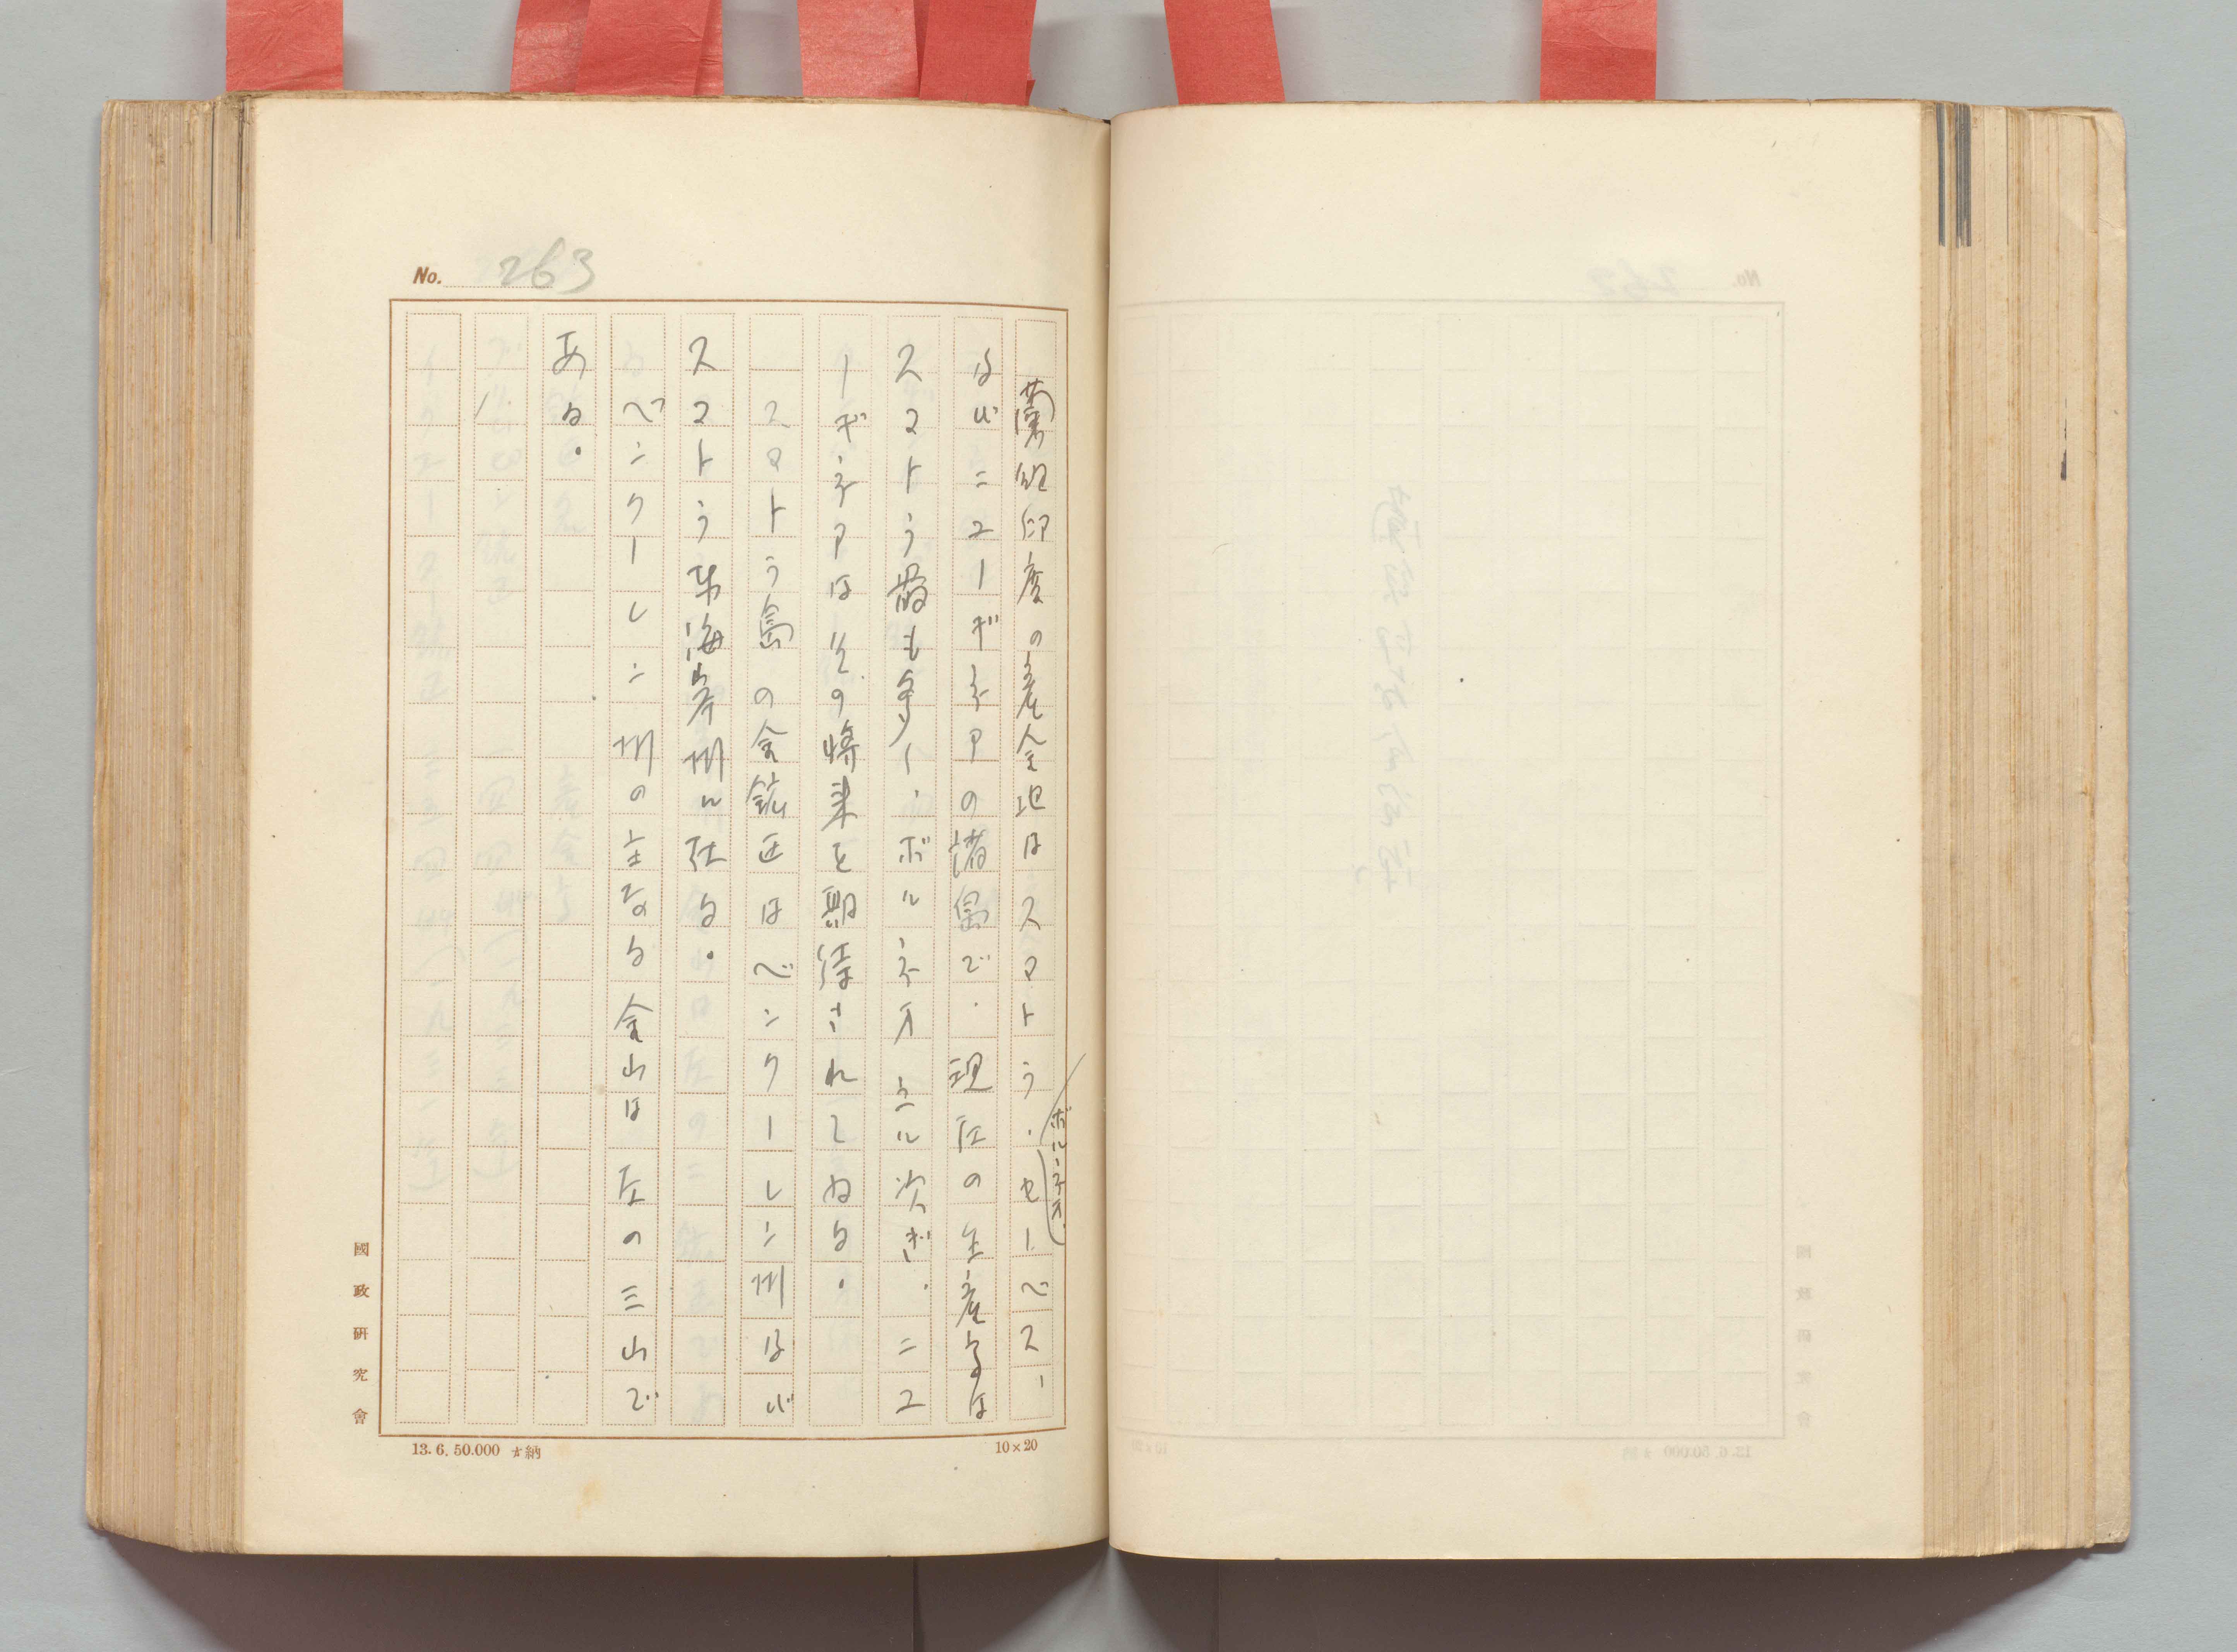 No. 263
蘭領印度の産金地はスマトラ・セーベスー
ボルネオ・
及びニユーギネアの諸島で、現在の生産高は
スマトラ最も多く、ボルネオ之に次ぎ、ニユ
ーギネアはただ其の将来を期待されてゐる。
スマトラ島の金鉱区はベンクーレン州及び
スマトラ東海岸州に在る。
ベンクーレン州の主なる金山は左の三山で
ある。
國政研究會
13.6.50.000 納
10×20